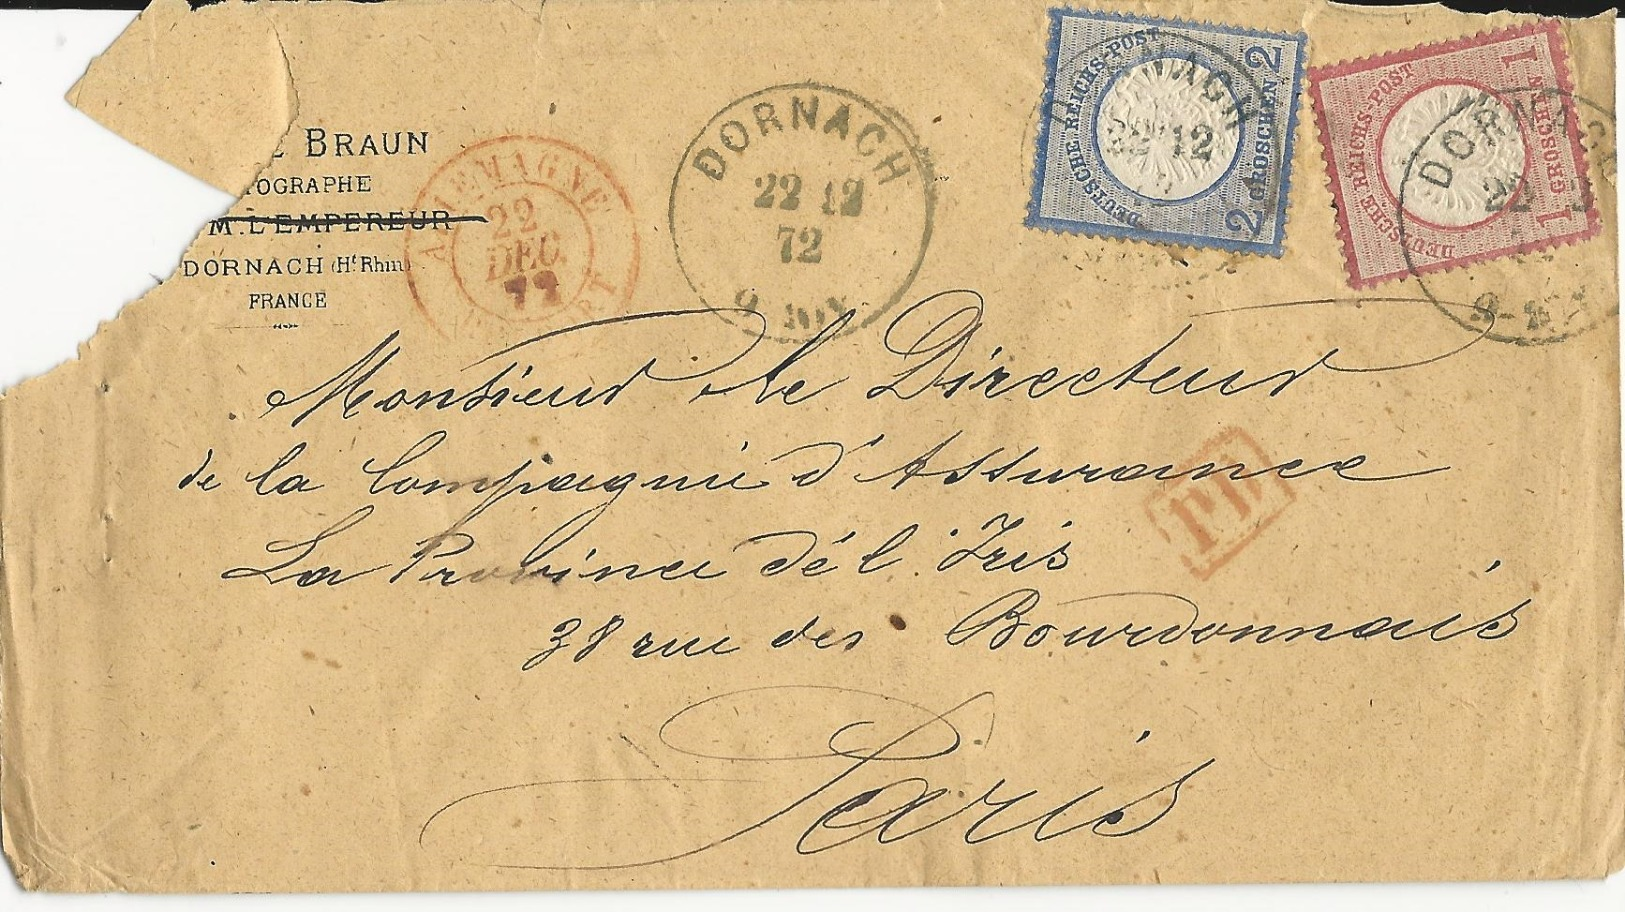 E BRAUN
TOGRAPHE
M. L'EMPEREUR
DORNACH (Ht Rhin)
FRANCE
ALLEMAGNE
22
DEC.
72
DORNACH
22 12
72
DEUTSCHE REICHS-POST
2 GROSCHEN 2
DORNACH
22 12
DEUTSCHE REICHS-POST
1 GROSCHEN 1
DORNACH
22
Monsieur le Directeur
de la Compagnie d'Assurance
La Province dél'Iris
38 rue des Bourdonnais
Paris
PD